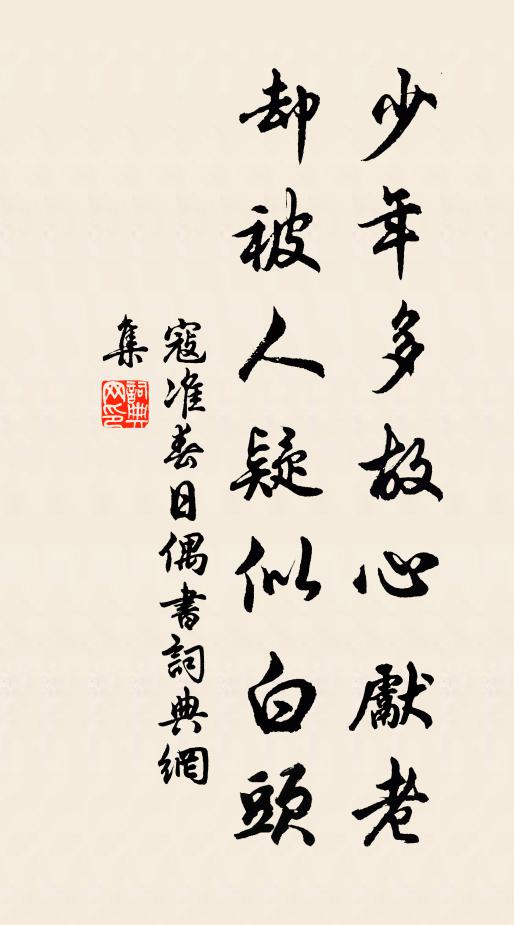 少年多故心獻老
却被人疑似白頭
寇准春日偶書詞典網
集
詞典
网印